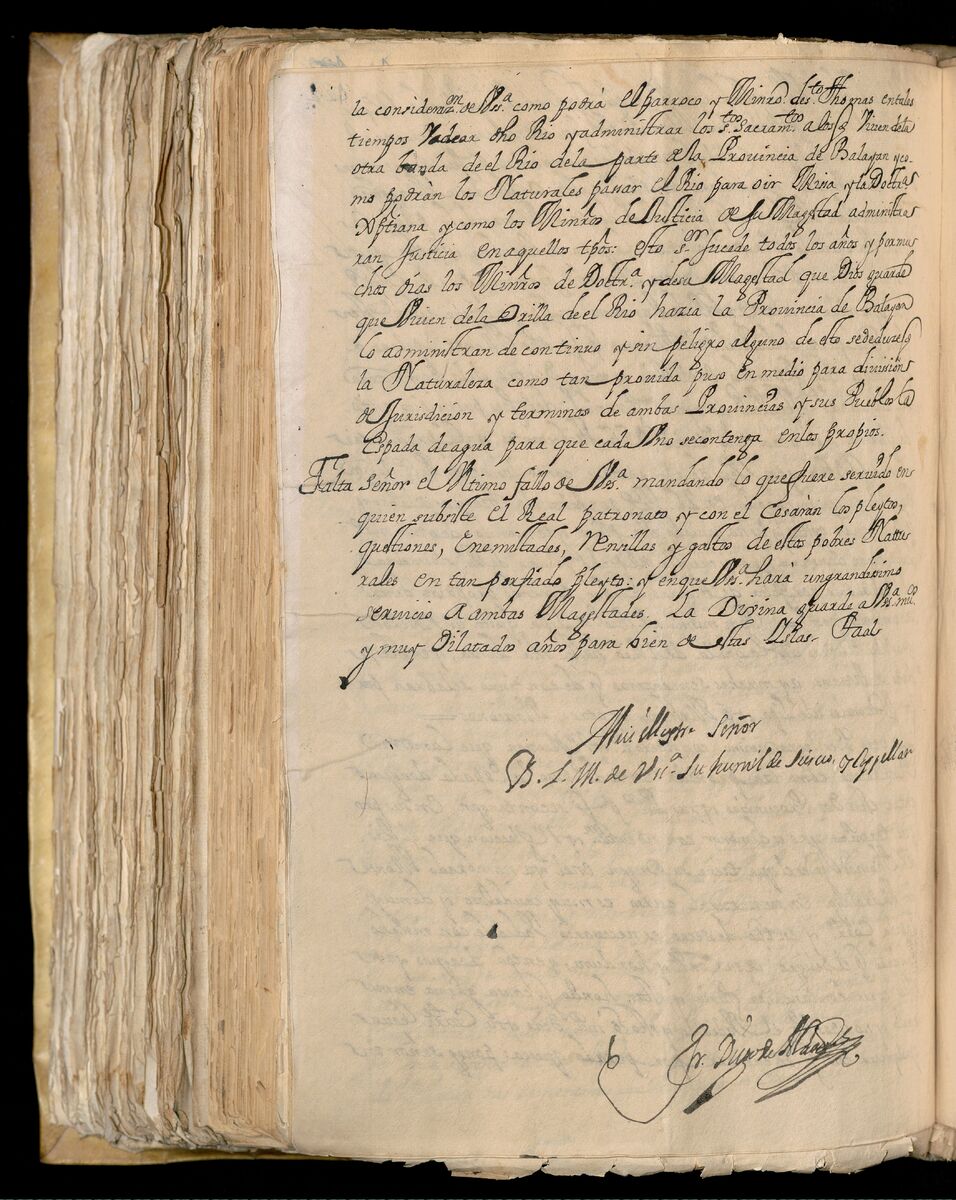 la consideraz.on de Vs.a como podrà El parroco y Minro. de s.to Thomas en tales
tiempos Vadear dho Rio y administrar los s.tos Sacram.tos a los q̃ Viven de la
otra banda de el Rio de la parte de la Provincia de Balayan y co-
mo podràn los Naturales passar el Rio para oir Missa y la Doctri
Xp̃tiana y como los Minros de Justicia de Su Magestad administra
ran Justicia en aquellos tpos: esto s.or sucede todos los años y por mu
chos dias los Minros de Doctr.a y de su Magestad que Dios guarde
que Viven de la Orilla de el Rio hazia la Provincia de Balayan
lo administran de continuo y sin peligro alguno de esto se deduze q̃
la Naturaleza como tan provida puso en medio para division
de Jurisdicion y terminos de ambas Provincias y sus Pueblos la
Espada de agua para que cada Vno se contenga en los propios.
Falta Señor el Vltimo fallo de Vs.a mandando lo que fuere servido en
quien subsiste el Real patronato y con el Cesaràn los pleytos,
questiones, Enemistades, Rensillas y gastos de estos pobres Natu
rales en tan porfiado pleyto: y en que Vs.a harà un grandissimo
servicio a ambas Magestades. La Divina guarde a Vs.a m.s
y muy Dilatados años para bien de estas Yslas. Taal
Mui Illustre Señor
B. L. M. de Vs.a Su humilde Siervo y Cappellan
Fr. de